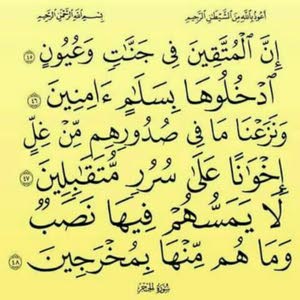 أَعُوذُ بِاللَّهِ مِنَ الشَّيْطَانِ الرَّجِيمِ بِسْمِ اللَّهِ الرَّحْمَٰنِ الرَّحِيمِ
إِنَّ ٱلْمُتَّقِينَ فِى جَنَّٰتٍ وَعُيُونٍ ٤٥
ٱدْخُلُوهَا بِسَلَٰمٍ ءَامِنِينَ ٤٦
وَنَزَعْنَا مَا فِى صُدُورِهِم مِّنْ غِلٍّ
إِخْوَٰنًا عَلَىٰ سُرُرٍ مُّتَقَٰبِلِينَ ٤٧
لَا يَمَسُّهُمْ فِيهَا نَصَبٌ
وَمَا هُم مِّنْهَا بِمُخْرَجِينَ ٤٨
سُورَةُ الحِجْرِ